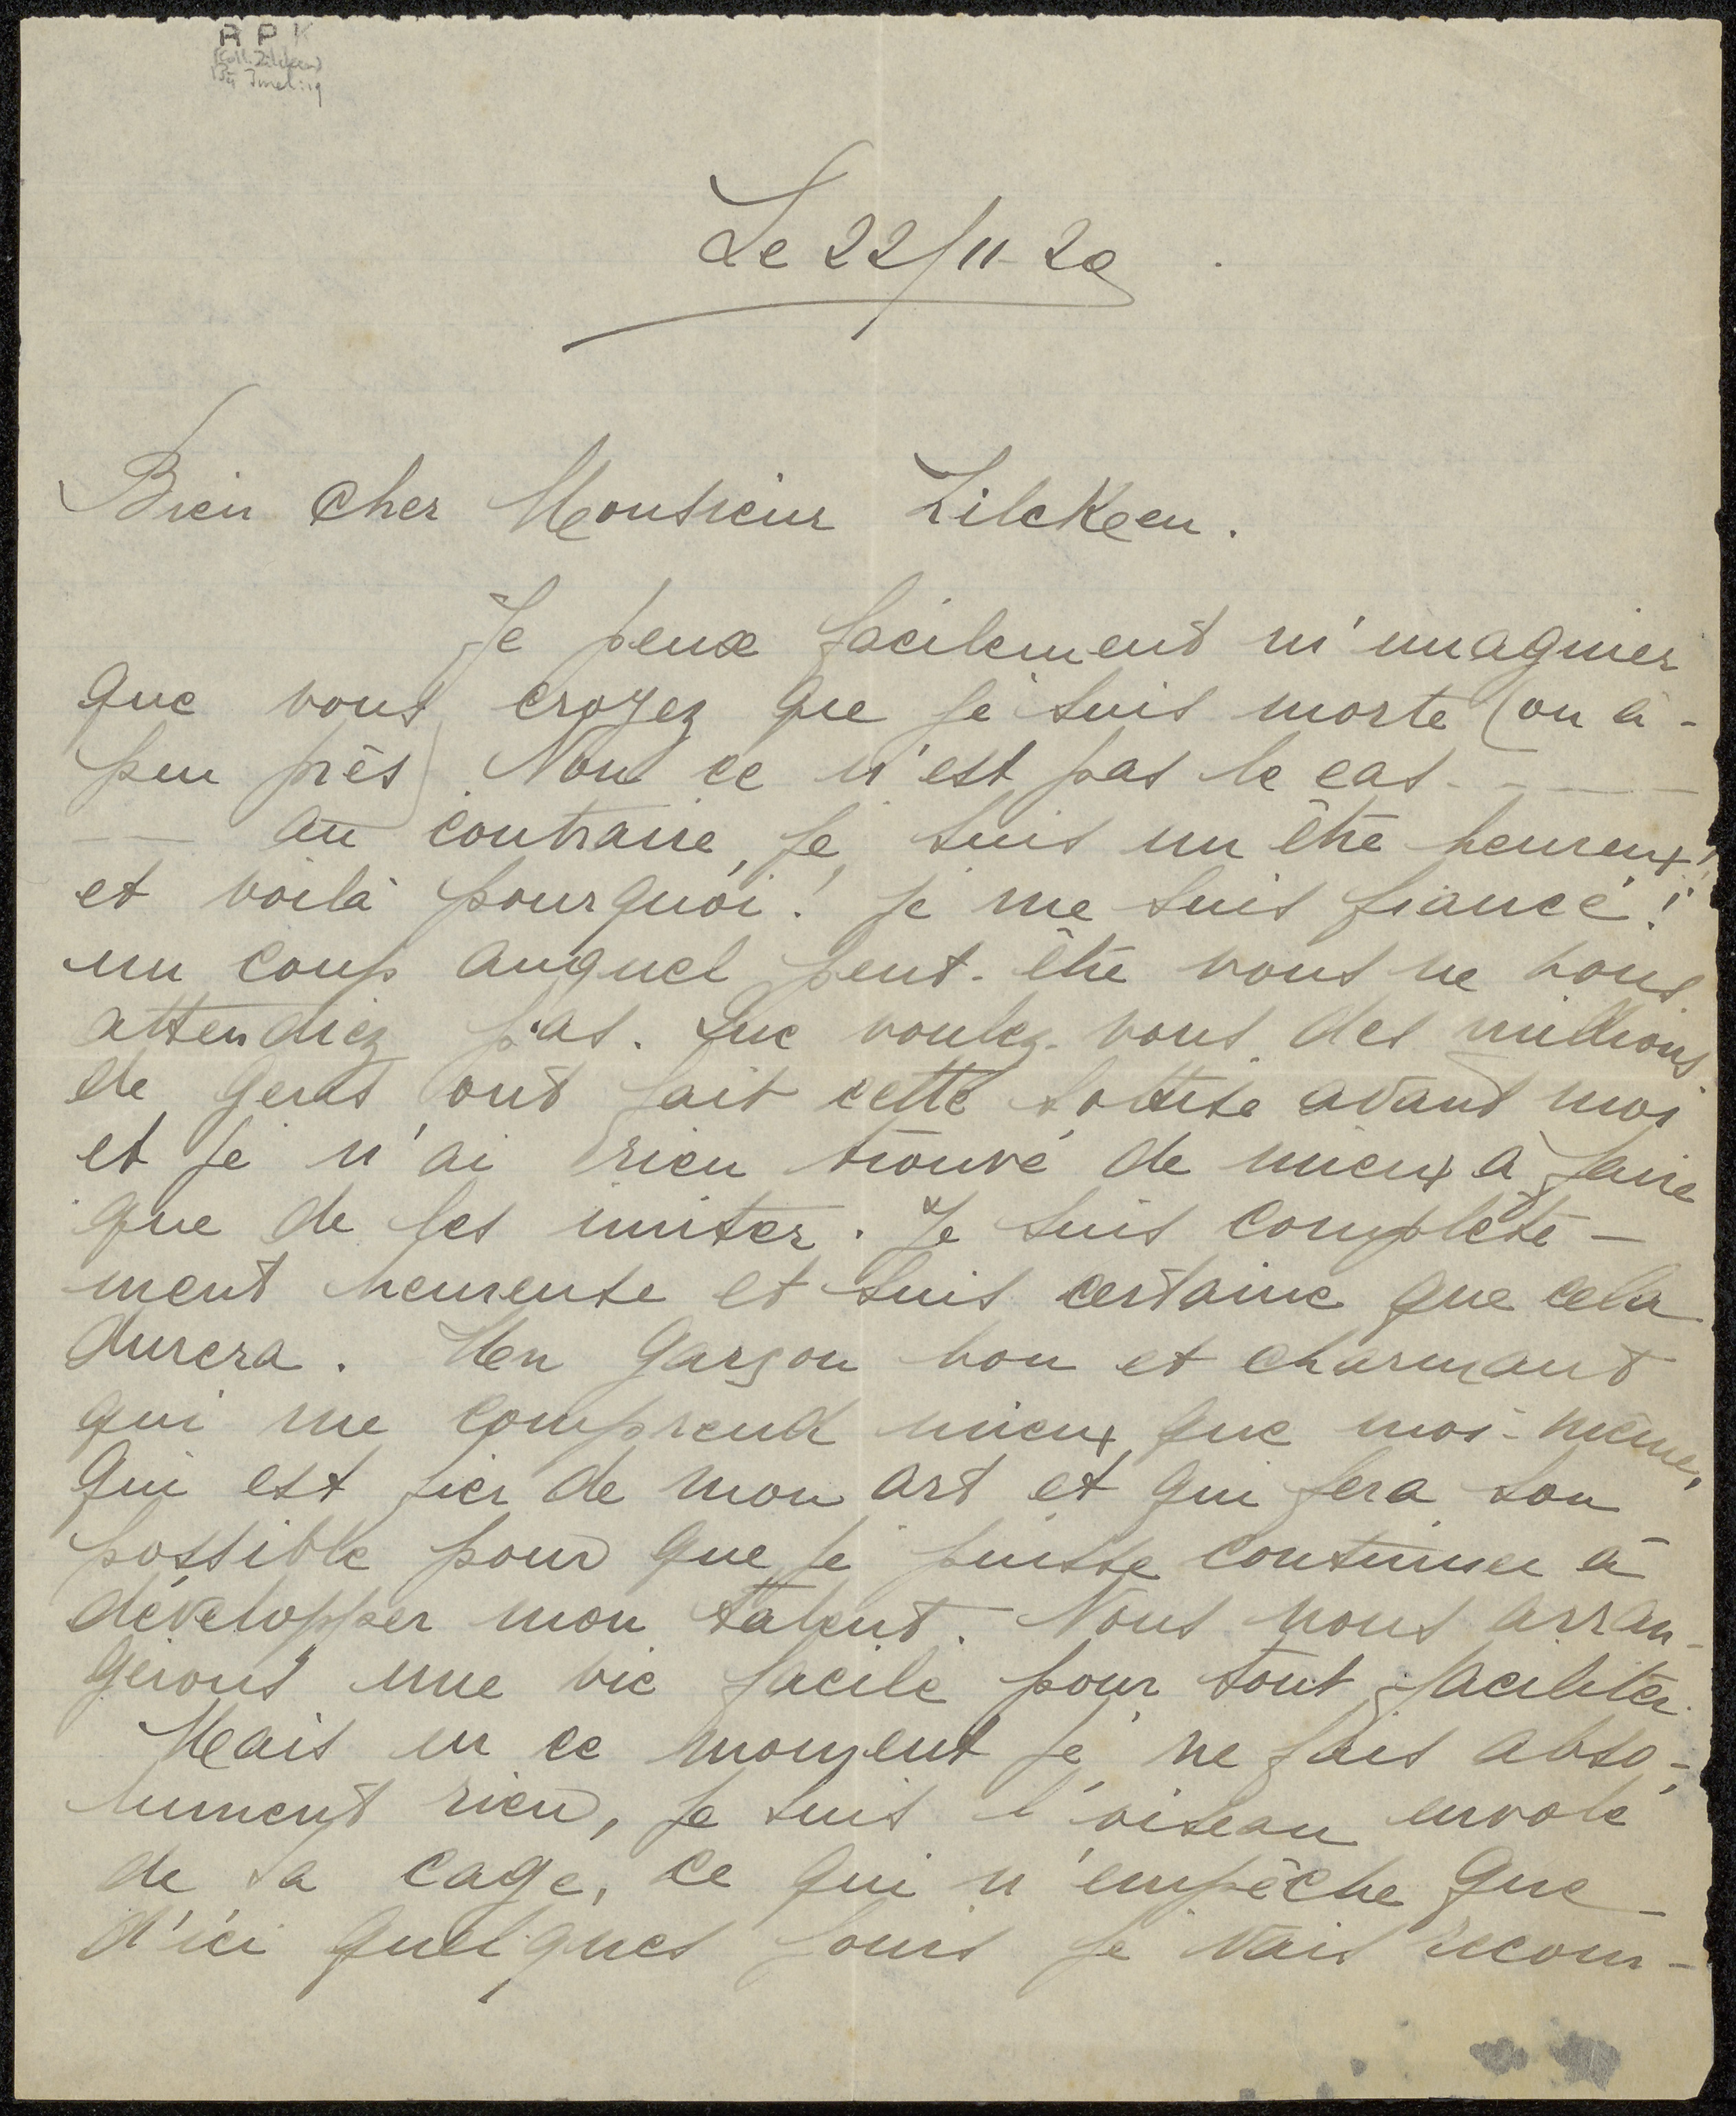 R P K
(Coll. Zilcken)
Le 22/11-20
Bien cher Monsieur Zilcken.
Je peux facilement m'imaginer
que vous croyez que je suis morte (ou à-
peu près). Non ce n'est pas le cas - - - -
- - au contraire, je suis un être heureux!
et voilà pourquoi! je me suis fiancé!!
un coup auquel peut-être vous ne vous
attendiez pas. Que voulez-vous des millions
de gens ont fait cette sottise avant moi
et je n'ai rien trouvé de mieux à faire
que de les imiter. Je suis complète-
ment heureuse et suis certaine que cela
durera. Un garçon bon et charmant
qui me comprend mieux que moi-même,
qui est fier de mon art et qui fera son
possible pour que je puisse continuer à
développer mon talent. Nous nous arran-
gerons une vie facile pour tout faciliter.
Mais en ce moment je ne fais abso-
lument rien, je suis l'oiseau envolé
de sa cage, ce qui n'empêche que
d'ici quelques jours je vais recom-